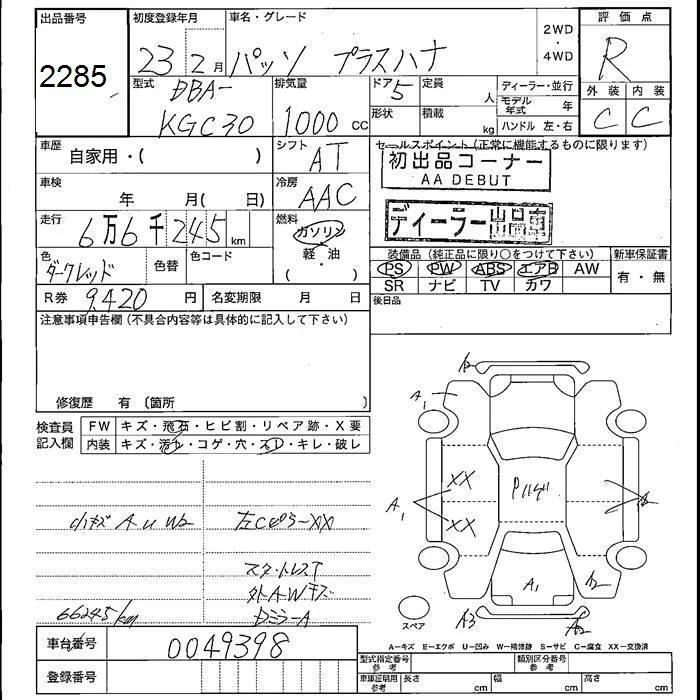 出品番号 初度登録年月 車名・グレード 2WD・4WD 評価点
2285 23 2月 パッソ プラスハナ R
型式 排気量 ドア 定員 人 ディーラー・並行 外装 内装
DBA- 5 モデル年式 年
KGC30 1000 cc 形状 積載 kg ハンドル 左・右 C C
車歴 自家用・( ) シフト AT セールスポイント(正常に機能するものに限ります)
初出品コーナー
AA DEBUT
車検 年 月( 日) 冷房 AAC
ディーラー出品車
走行 6万6千245km 燃料 ガソリン
軽・油
( )
装備品(純正品に限り○をつけて下さい) 新車保証書
色 ダークレッド 色替 色コード PS PW ABS エアB AW 有・無
SR ナビ TV カワ
R券 9,420円 名変期限 月 日 後日品
注意事項申告欄(不具合内容等は具体的に記入して下さい)
修復歴 有 〔箇所 〕
検査員記入欄 FW キズ・飛石・ヒビ割・リペア跡・X要
内装 キズ・汚れ・コゲ・穴・スレ・キレ・破レ
A1
XX
A1 Pハゲ
XX
小キズ A U W2 左Cピラ〜XX
スタットレスT
外A・Wキズ
66245km DミラーA
A1 A2
A3
スペア
A-キズ E-エクボ U-凹み W-補修跡 S-サビ C-腐食 XX-交換済
車台番号 0049398
型式指定番号 参考 類別区分番号 参考
登録番号 車庫証明用 参考 長さ cm 幅 cm 高さ cm